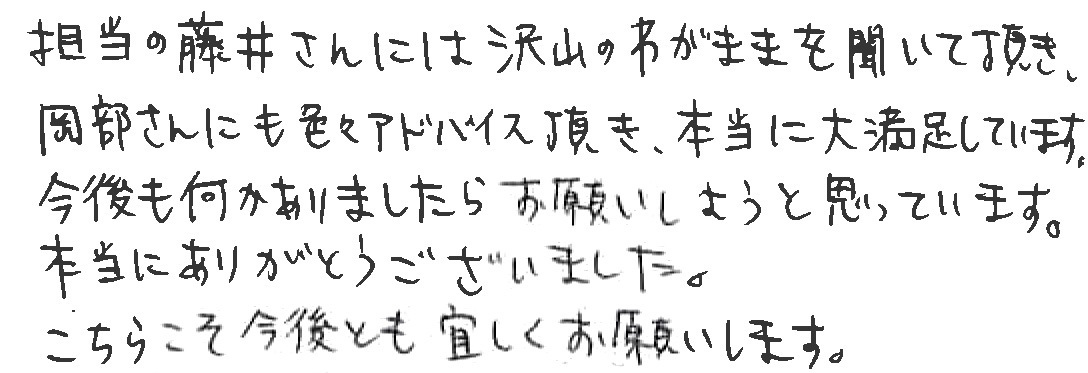 担当の藤井さんには沢山のわがままを聞いて頂き、
岡部さんにも色々アドバイス頂き、本当に大満足しています。
今後も何かありましたらお願いしようと思っています。
本当にありがとうございました。
こちらこそ今後とも宜しくお願いします。